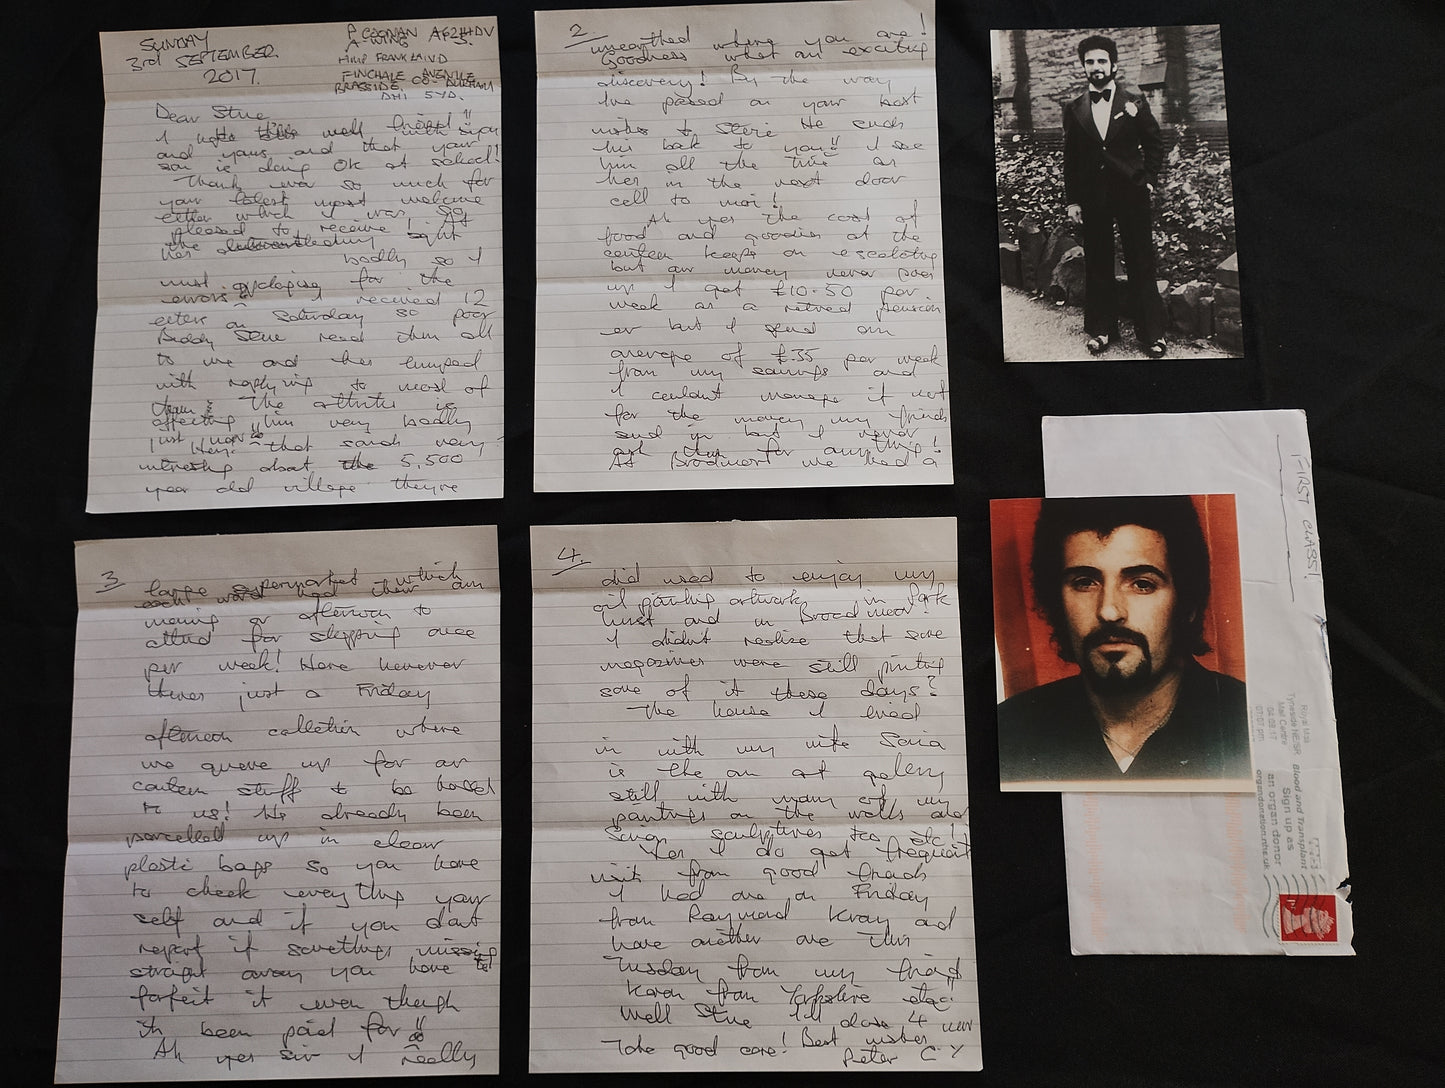 SUNDAY
3rd SEPTEMBER
2017.
P COONAN A6214DV
A WING
HMP FRANKLAND
FINCHALE AVENUE
BRASSIDE CO. DURHAM
DH1 5YD.
Dear Stue
well friend!!
and yours and that your
son is doing OK at school!
Thank ever so much for
your latest most welcome
letter which I was so
pleased to receive! At
the sight
badly so I
must apologise for the
errors! I received 12
letters on Saturday so poor
Buddy Steve read them all
to me and helped
with replying to most of
them! The arthritis is
affecting him very badly
just now!
Hey! that sounds very
interesting about the 5,500
year old village they're
2
unearthed where you are!
Goodness what an exciting
discovery! By the way
I've passed on your best
wishes to Steve He sends
his back to you!! I see
him all the time as
he's in the next door
cell to moi!
Ah yes the cost of
food and goodies at the
canteen keeps on escalating
but our money never goes
up I get £10.50 per
week as a retired pension
er but I spend on
average of £35 per week
from my savings and
I couldn't manage if not
for the money my friends
send in but I never
ask them for anything!
At Broadmoor we had a
3
large supermarket which
each ward had their own
morning or afternoon to
attend for shopping once
per week! Here however
theres just a Friday
afternoon collection where
we queue up for our
canteen stuff to be handed
to us! It's already been
parcelled up in clear
plastic bags so you have
to check everything your
self and if you don't
report if something's missing
straight away you have to
forfeit it even though
it's been paid for!!
Ah yes sir I really
4.
did used to enjoy my
oil painting artwork in Park
hurst and in Broadmoor!
I didn't realise that some
magazines were still printing
some of it these days?
The house I lived
in with my wife Sonia
is like an art gallery
still with many of my
paintings on the walls and
Sonia's sculptures too etc!
Yes I do get frequent
visits from good friends
I had one on Friday
from Raymond Kray and
have another one this
Tuesday from my friend
Karen from Yorkshire etc:
Well Stue I'll close 4 now
Take good care! Best wishes
Peter C Y
FIRST CLASS!
Royal Mail
Tyneside NE/SR
Mail Centre
04-09-17
Blood and Transplant
Sign up as
an organ donor
organdonation.nhs.uk
1st